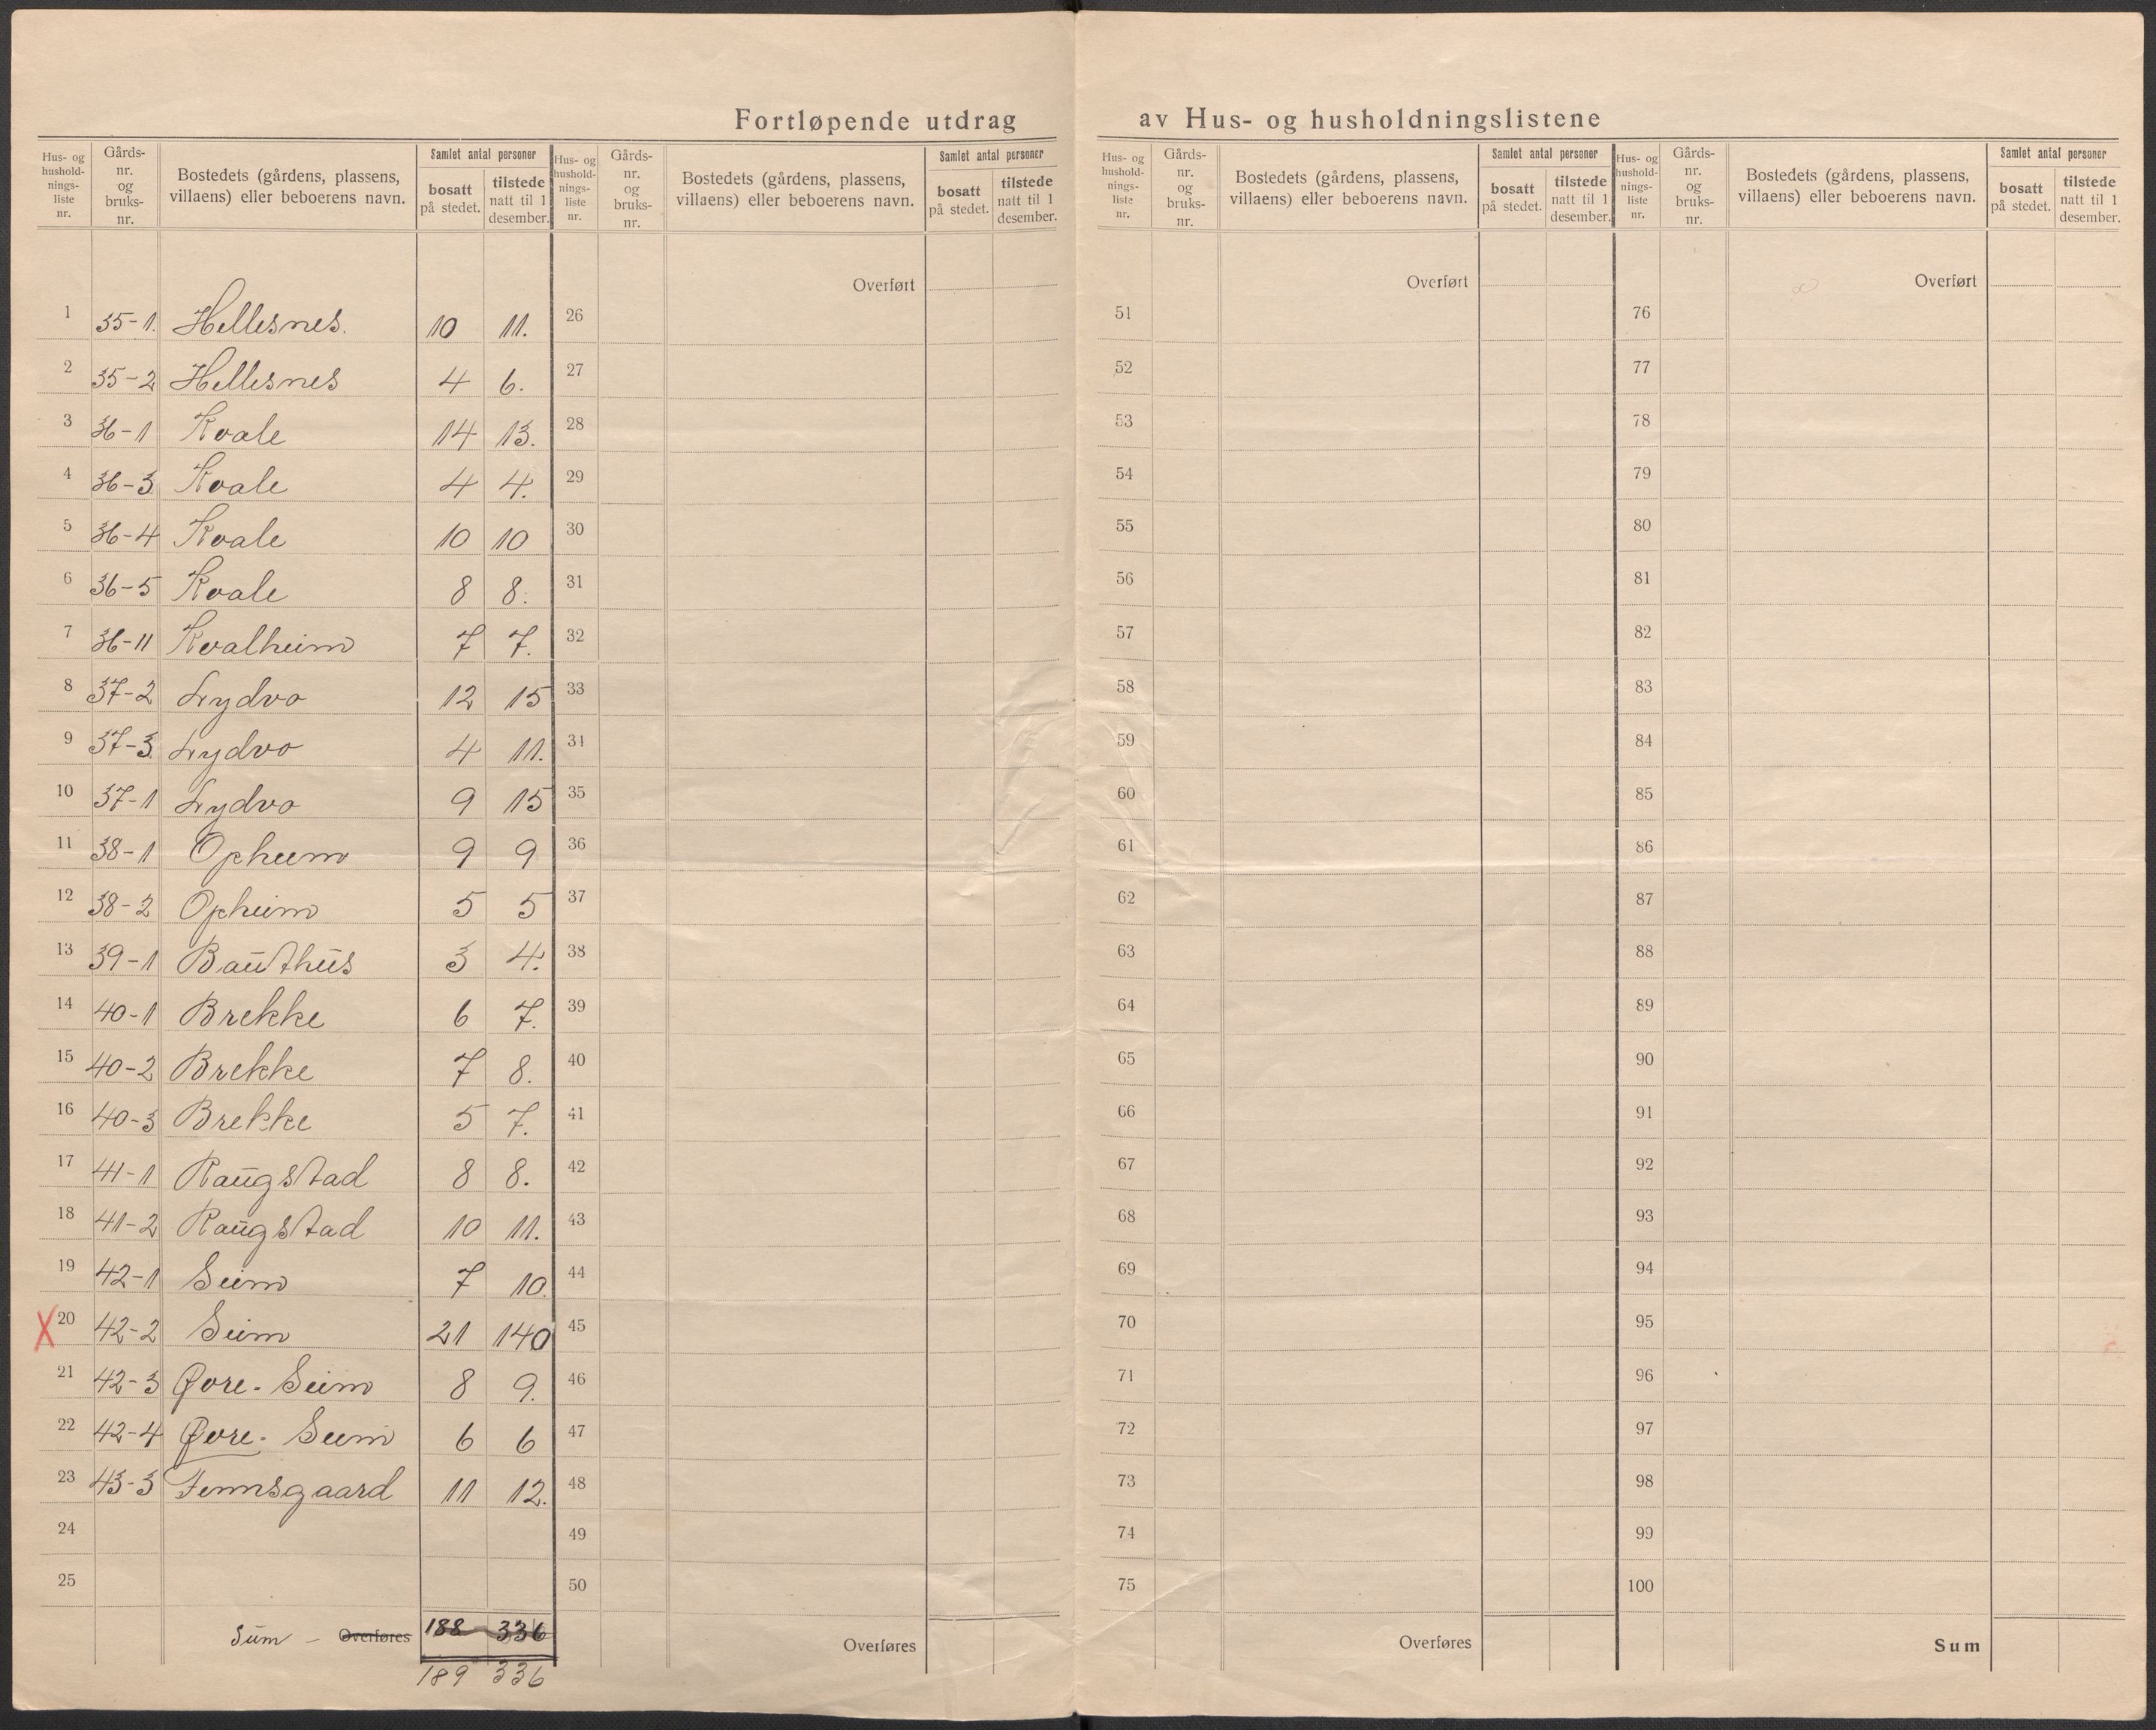 Fortløpende utdrag av Hus- og husholdningslistene
Hus- og hushold-nings-liste nr. | Gårds-nr. og bruks-nr. | Bostedets (gårdens, plassens, villaens) eller beboerens navn. | Samlet antal personer | bosatt på stedet. | tilstede natt til 1 desember.
Hus- og hushold-nings-liste nr. | Gårds-nr. og bruks-nr. | Bostedets (gårdens, plassens, villaens) eller beboerens navn. | Samlet antal personer | bosatt på stedet. | tilstede natt til 1 desember.
Hus- og hushold-nings-liste nr. | Gårds-nr. og bruks-nr. | Bostedets (gårdens, plassens, villaens) eller beboerens navn. | Samlet antal personer | bosatt på stedet. | tilstede natt til 1 desember.
Hus- og hushold-nings-liste nr. | Gårds-nr. og bruks-nr. | Bostedets (gårdens, plassens, villaens) eller beboerens navn. | Samlet antal personer | bosatt på stedet. | tilstede natt til 1 desember.
1 35-1. Hellesnes. 10 11.
2 35-2 Hellesnes 4 6.
3 36-1 Kvale 14 13.
4 36-3 Kvale 4 4.
5 36-4 Kvale 10 10
6 36-5 Kvale 8 8.
7 36-11 Kvalheim 7 7.
8 37-2 Lydvo 12 15
9 37-3 Lydvo 4 11.
10 37-1 Lydvo 9 15
11 38-1 Opheim 9 9
12 38-2 Opheim 5 5
13 39-1 Bauthus 3 4.
14 40-1 Brekke 6 7.
15 40-2 Brekke 7 8.
16 40-3 Brekke 5 7.
17 41-1 Raugstad 8 8.
18 41-2 Raugstad 10 11.
19 42-1 Seim 7 10.
X 20 42-2 Seim 21 140
21 42-3 Øvre-Seim 8 9.
22 42-4 Øvre-Seim 6 6
23 43-3 Finnsgaard 11 12.
24
25
Sum - Overføres 188 336
189 336
Overført
26
27
28
29
30
31
32
33
34
35
36
37
38
39
40
41
42
43
44
45
46
47
48
49
50
Overføres
Overført
51
52
53
54
55
56
57
58
59
60
61
62
63
64
65
66
67
68
69
70
71
72
73
74
75
Overføres
Overført
76
77
78
79
80
81
82
83
84
85
86
87
88
89
90
91
92
93
94
95
96
97
98
99
100
Sum